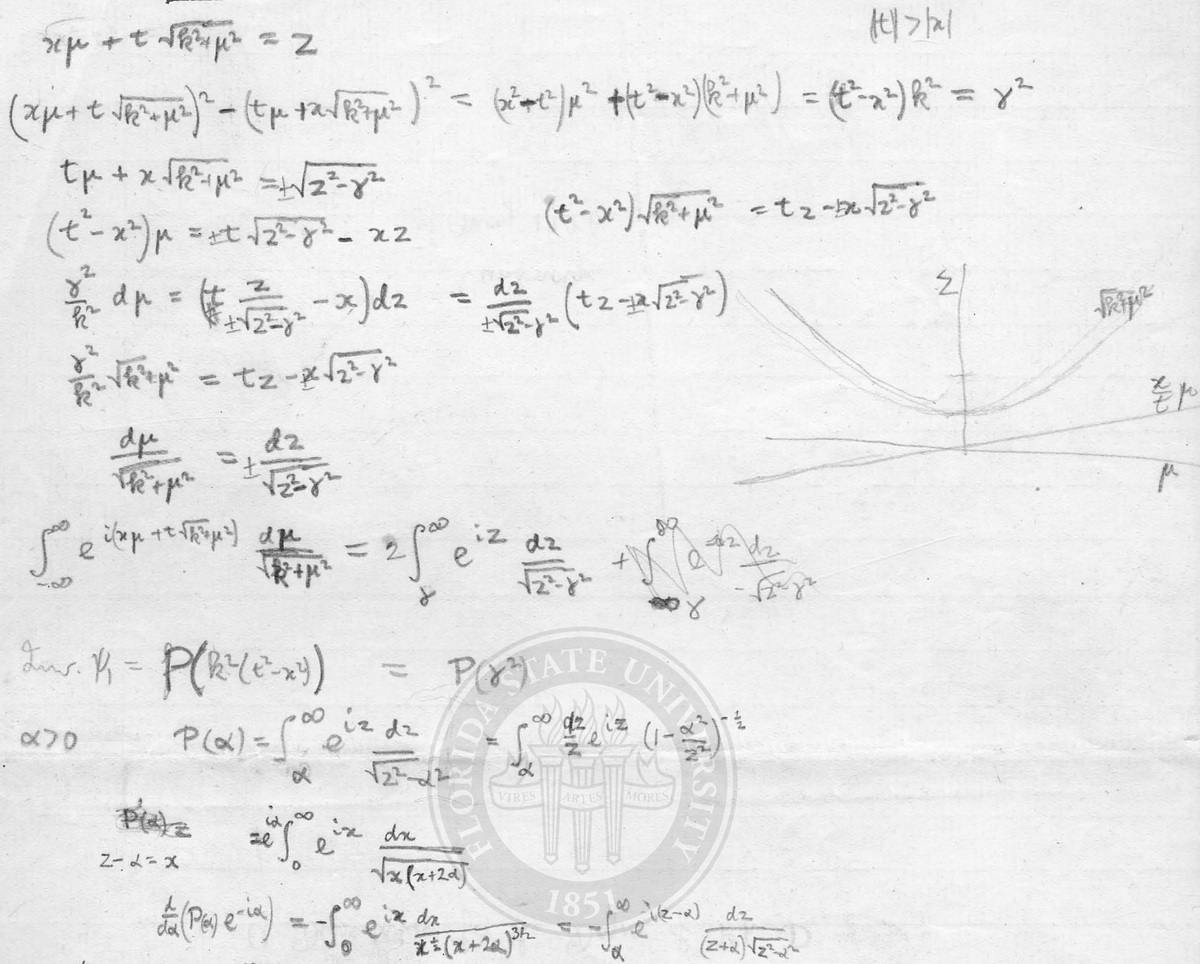 |t| > |x|
xμ + t √(k²+μ²) = z
(xμ + t √(k²+μ²))² − (tμ + x√(k²+μ²))² = (x²−t²)μ² + (t²−x²)(k²+μ²) = (t²−x²)k² = γ²
tμ + x √(k²+μ²) = ±√(z²−γ²)
(t²−x²)√(k²+μ²) = tz ∓ x√(z²−γ²)
(t²−x²)μ = ±t √(z²−γ²) − xz
γ²/k² dμ = (t z/(±√(z²−γ²)) − x)dz = dz/(±√(z²−γ²)) (tz ∓ x√(z²−γ²))
Σ
√(k²+μ²)
γ²/k² √(k²+μ²) = tz ∓ x√(z²−γ²)
x/t μ
μ
dμ/√(k²+μ²) = ± dz/√(z²−γ²)
∫_{−∞}^{∞} e^{i(xμ + t√(k²+μ²))} dμ/√(k²+μ²) = 2∫_γ^∞ e^{iz} dz/√(z²−γ²)
Inv. = P(k²(t²−x²)) = P(γ²)
α>0 P(α) = ∫_α^∞ e^{iz} dz/√(z²−α²) = ∫_α^∞ dz/z e^{iz} (1−α²/z²)^{−1/2}
z−α = x = e^{iα} ∫_0^∞ e^{ix} dx/√(x(x+2α))
d/dα (P(α) e^{−iα}) = −∫_0^∞ e^{ix} dx/(x^{1/2}(x+2α)^{3/2}) = −∫_α^∞ e^{i(z−α)} dz/((z+α)√(z²−α²))
FLORIDA STATE UNIVERSITY
VIRES ARTES MORES
1851